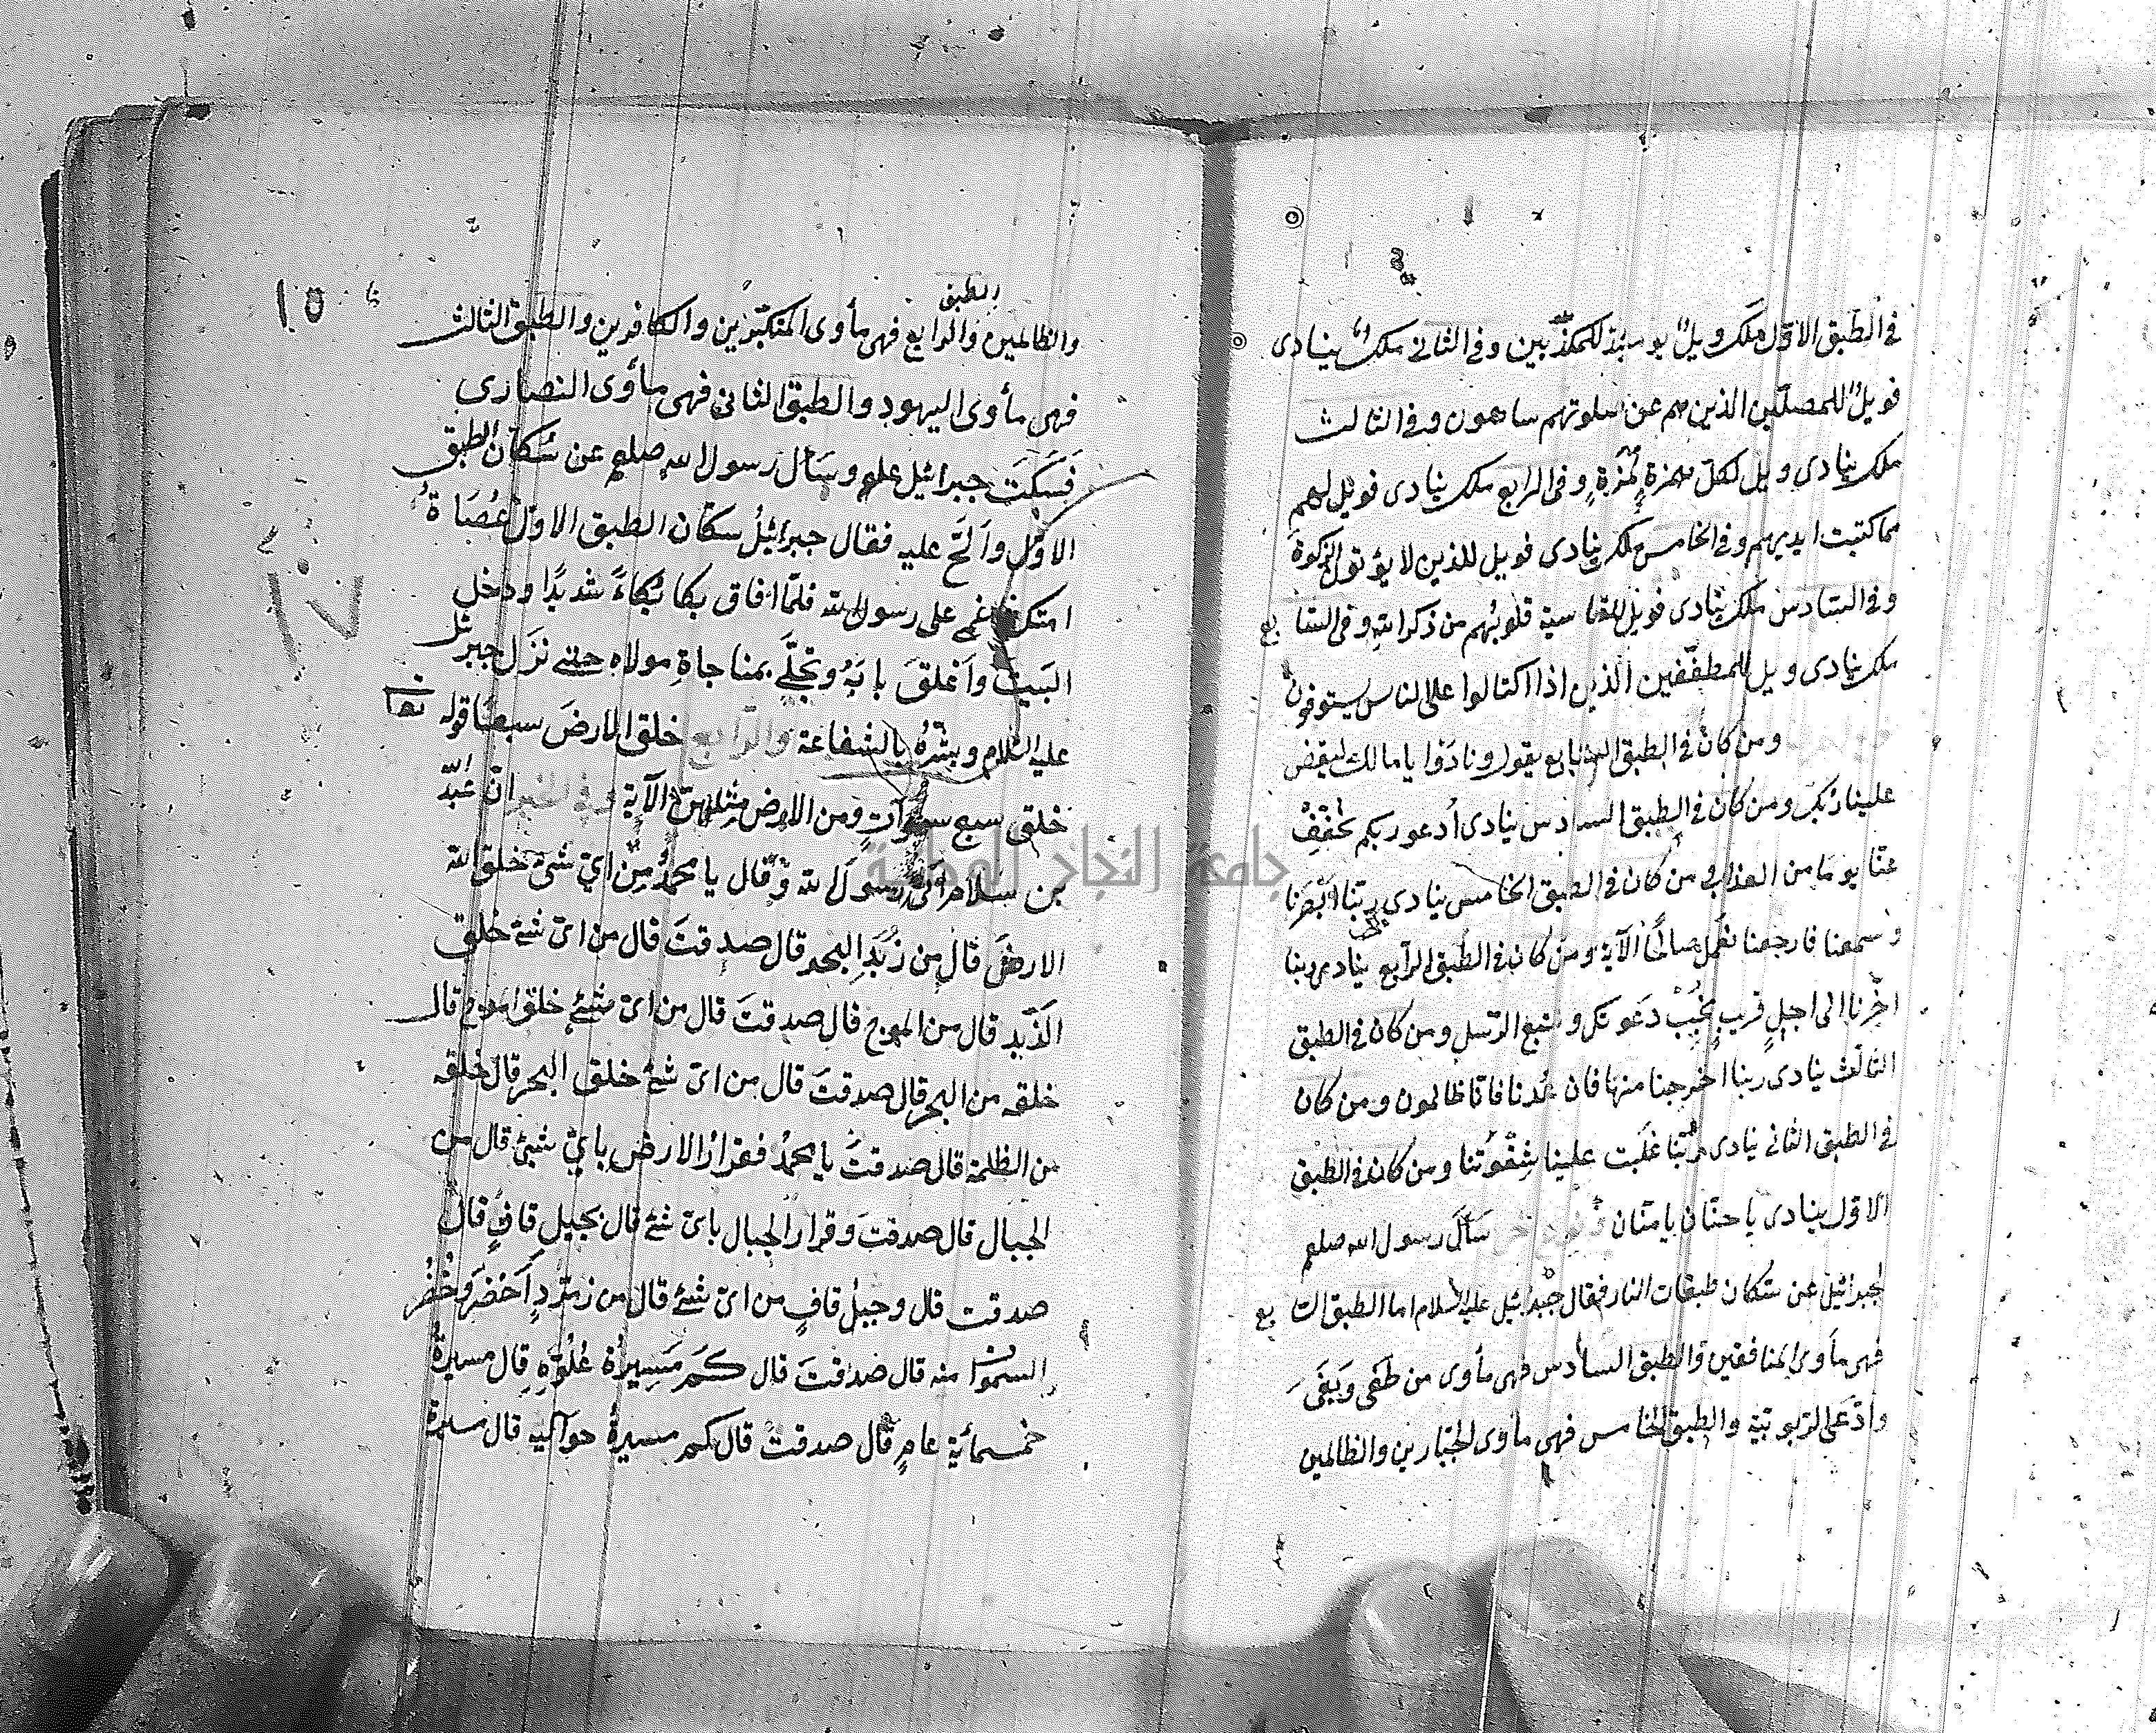 في الطبق الاوّل ملك ويلٌ يومئذ للمكذّبين وفي الثاني ملك ينادى
فويلٌ للمصلّين الذين هم عن صلوتهم ساهون وفي الثالث
ملك ينادى ويل لكلّ همزةٍ لُمَزَةٍ وفي الرابع ملك ينادى فويل لهم
مما كتبت ايديهم وفي الخامس ملك ينادى فويل للذين لا يؤتون الزكوةَ
وفي السّادس ملك ينادى فويل للقاسية قلوبُهم من ذكر الله وفي السّابع
ملك ينادى ويل للمطفّفين الذين اذا اكتالوا على الناس يستوفون
ومن كان في الطبق السابع يقول ونادَوْا يا مالك ليقض
علينا ربّك ومن كان في الطبق السادس ينادى أدعو ربكم يُخَفِّفْ
عنّا يوما من العذاب ومن كان في الطبق الخامس ينادى ربّنا اَبْصَرْنا
وسمعنا فارجعنا نعمل صالحًا الآية ومن كان في الطبق الرابع ينادى ربنا
اخّرنا الى اجلٍ قريب نُجِبْ دَعوتك ونتبع الرّسل ومن كان في الطبق
الثالث ينادى ربنا اخرجنا منها فان عُدنا فانّا ظالمون ومن كان
في الطبق الثاني ينادى ربّنا غلَبت علينا شِقْوَتنا ومن كان في الطبق
الاوّل ينادى يا حنّان يا منّان سَأَلَ رسول الله صلعم
لجبرائيل عن سُكّان طبقات النار فقال جبرائيل عليه السلام اما الطبق السابع
فهى مأوى المنافقين والطبق السادس فهى مأوى من طَغَى وَبَغَى
وادّعى الرّبوبيّة والطبق الخامس فهى مأوى الجبّارين والظالمين
١٥
والظالمين والطبق الرابع فهى مأوى المتكبّرين والكافرين والطبق الثالث
فهى مأوى اليهود والطبق الثاني فهى مأوى النصارى
فَسَكَتَ جبرائيل علم وسَأل رسول الله صلعم عن سُكّان الطبق
الاوّل وأَلَحّ عليه فقال جبرائيلُ سكّان الطبق الاوّل عُصَاةُ
امتك فاغمى على رسول الله فلمّا افاق بكا بُكاءً شديدًا ودخل
البَيتَ وَاَغلقَ بابَهُ وتخلّى بمناجاةِ مولاه حتى نزَل جبرئل
عليه السّلام وبشّرهُ بالشفاعة والرابع خلق الارضَ سبعًا قوله تعا
خلق سبع سموات ومن الارض مثلهنّ الآية وفي الخبر انّ عَبْدُ اللّه
بن سَلام اتى رسولَ الله وقال يا محمدُ مِنْ ايّ شئ خلق الله
الارضَ قال من زُبَدِ البحر قال صدقتَ قال من اىّ شئ خلق
الزّبد قال من الموج قال صدقتَ قال من اىّ شئ خلق الموج قال
خلقه من البحر قال صدقتَ قال من اىّ شئ خلق البحر قال خلقه
من الظلمة قال صدقتَ يا محمدُ فقرارُ الارض بايّ شئ قال من
الجبال قال صدقتَ وقرار الجبال باىّ شئ قال بجبل قافٍ قال
صدقت قال وجبلُ قافٍ من اىّ شئ قال من زمرّدٍ اَخضرَ وخُضْرُ
السموات منه قال صدقتَ قال كَمْ مَسِيرَة عُلُوّهِ قال مسيرةُ
خمسمأية عامٍ قال صدقتَ قال كم مسيرةُ حواليه قال مسيرة
جامعة النجاح الوطنية